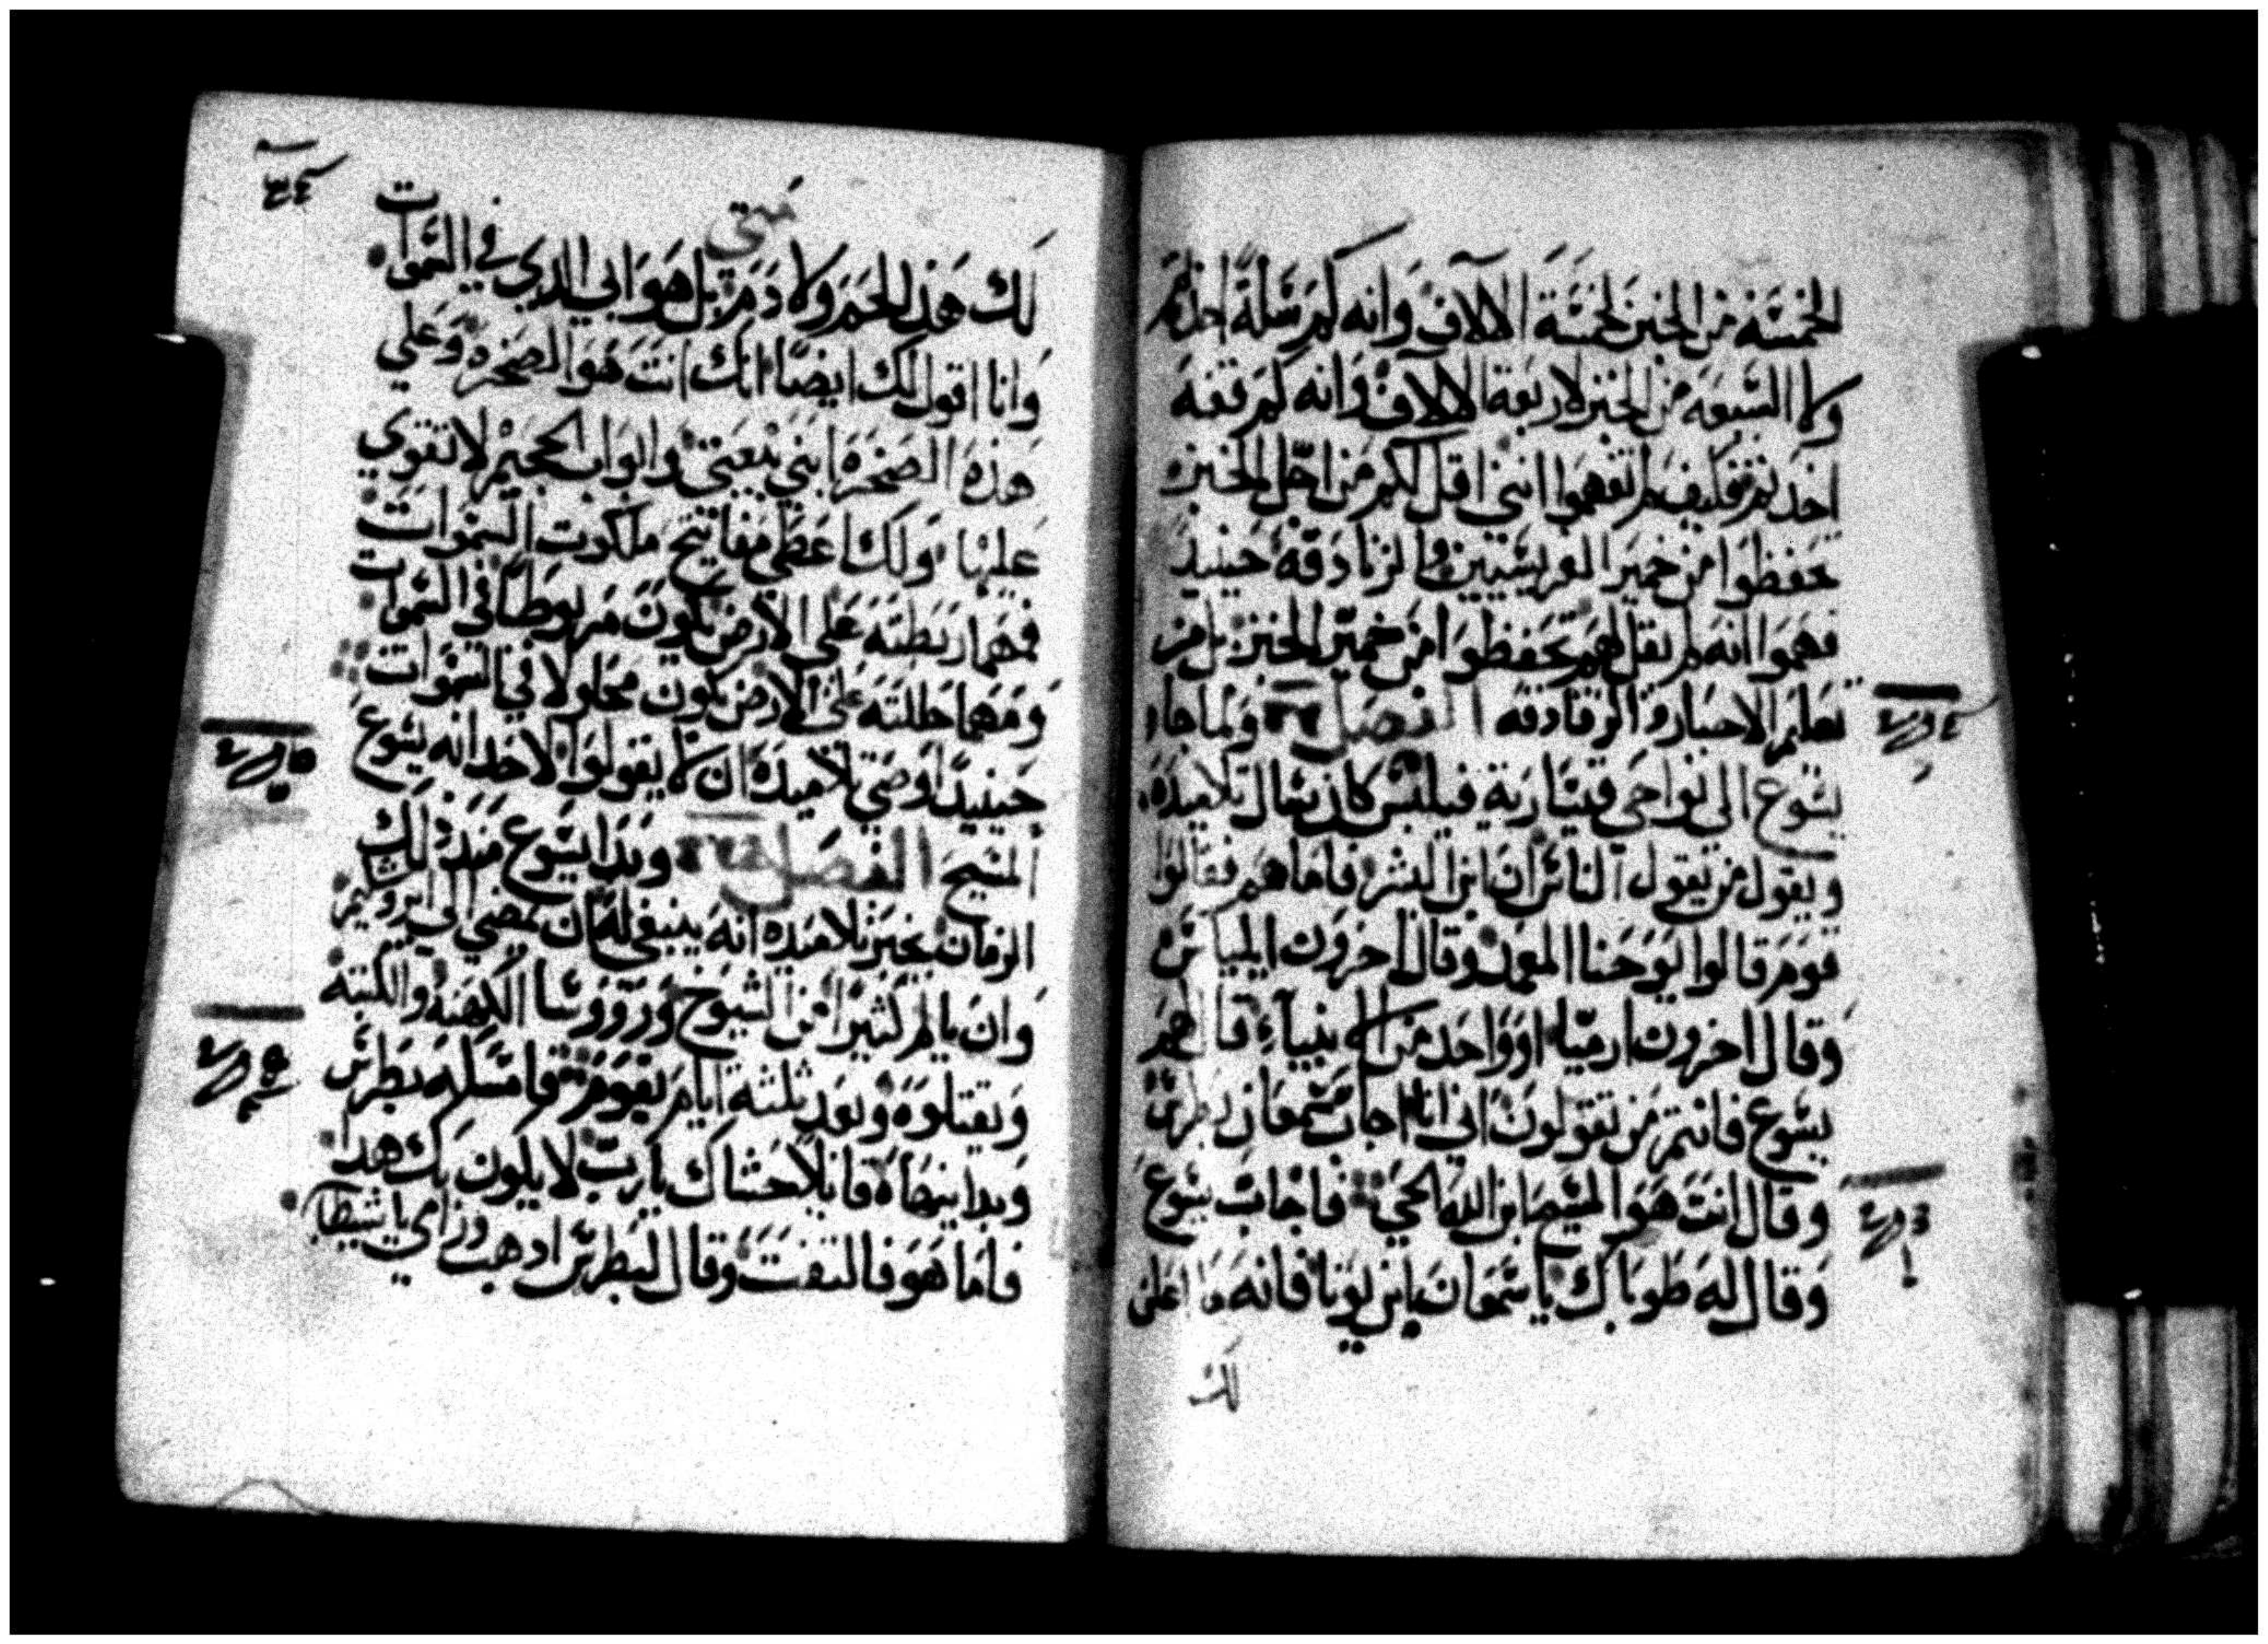 الخمسه من الخبز لخمسة الالاف وانه كم سلة اخذتم
ولا السبعه من الخبز لاربعة الالاف وانه كم قفه
اخدتم فكيف لم تفهموا انني اقل لكم من اجل الخبز
تحفظوا من خمير الفريسيين والزنادقه حينيذ
فهموا انه لم يقل لهم تحفظوا من خمير الخبز بل من
تعليم الاحبار والزنادقه الفصل ولما جاء
يسوع الى نواحي قيسارية فيلبس كان يسال تلاميذه
ويقول من يقول الناس ان ابن البشر فاما هم فقالوا
قوم قالوا يوحنا المعمد وقال اخرون ايلياس
وقال اخرون ارميا او واحد من الانبياء قال لهم
يسوع فانتم من تقولون اني انا اجاب سمعان بطرس
وقال انت هو المسيح ابن الله الحي فاجاب يسوع
وقال له طوباك يا سمعان بابن يونا فانه ما اعلن
لك
متى
لك هذا لحم ولا دم بل هو ابي الدي في السموات
وانا اقول لك ايضا انك انت هو الصخره وعلي
هذه الصخره ابني بيعتي وابواب الجحيم لا تقوي
عليها ولك اعطي مفاتيح ملكوت السموات
فمهما ربطته على الارض يكون مربوطا في السموات
ومهما حللته على الارض يكون محلولا في السموات
حينيذ اوصي تلاميذه ان لا يقولوا لاحد انه يسوع
المسيح الفصل وبدا يسوع منذ ذلك
الزمان يخبر تلاميذه انه ينبغي له ان يمضي الى ايروشليم
وان يالم كثيرا من الشيوخ وروؤسا الكهنه والكتبه
ويقتلوه وبعد ثلثة ايام يقوم فامسكه بطرس
وبدا ينهاه قايلا حشاك يا رب لا يكون بك هدا
فاما هو فالتفت وقال لبطرس ادهب وراي يا شيطان